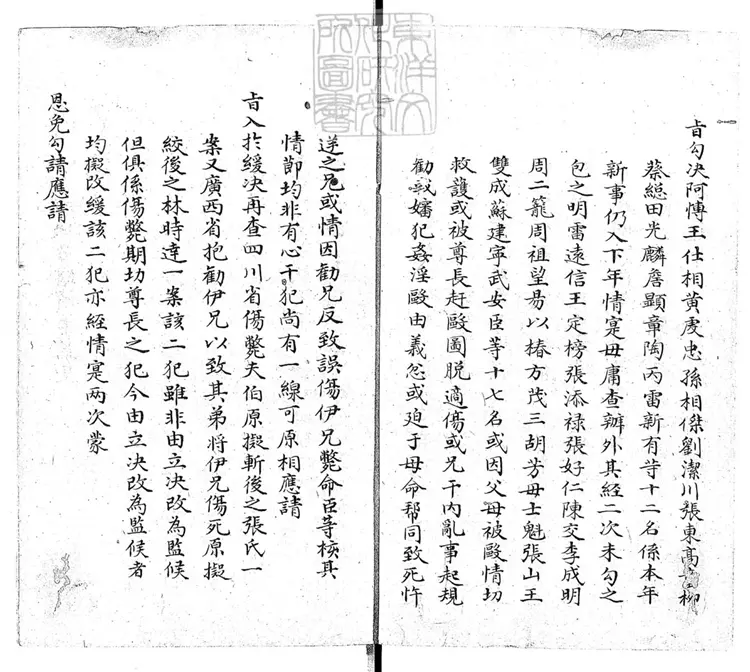 旨勾决阿愽王仕相黄虔忠孫相傑劉潔川張東高柳
蔡緦田光麟詹顕章陶丙雷新有䓁十二名係本年
新事仍入下年情寔毋庸查辦外其經二次未勾之
包之明雷遠信王定榜張添禄張好仁陳交李成明
周二籠周祖望易以椿方茂三胡芳毋士魁張山王
雙成蘇建寧武安臣等十七名或因父母被毆情切
救護或被尊長赶毆圖脱適傷或兄干内亂事起規
勸或嬸犯姦淫毆由義忿或廹于母命帮同致死忤
逆之兄或情因勸兄反致誤傷伊兄斃命臣等核其
情節均非有心干犯尚有一線可原相應請
旨入扵緩决再查四川省傷斃夫伯原擬斬後之張氏一
案又廣西省抱勸伊兄以致其弟將伊兄傷死原擬
絞後之林時達一案該二犯雖非由立决改為監候
但俱係傷斃期功尊長之犯今由立决改為監候者
均擬改緩該二犯亦經情寔两次蒙
恩免勾請應請
東洋文化研究所圖書